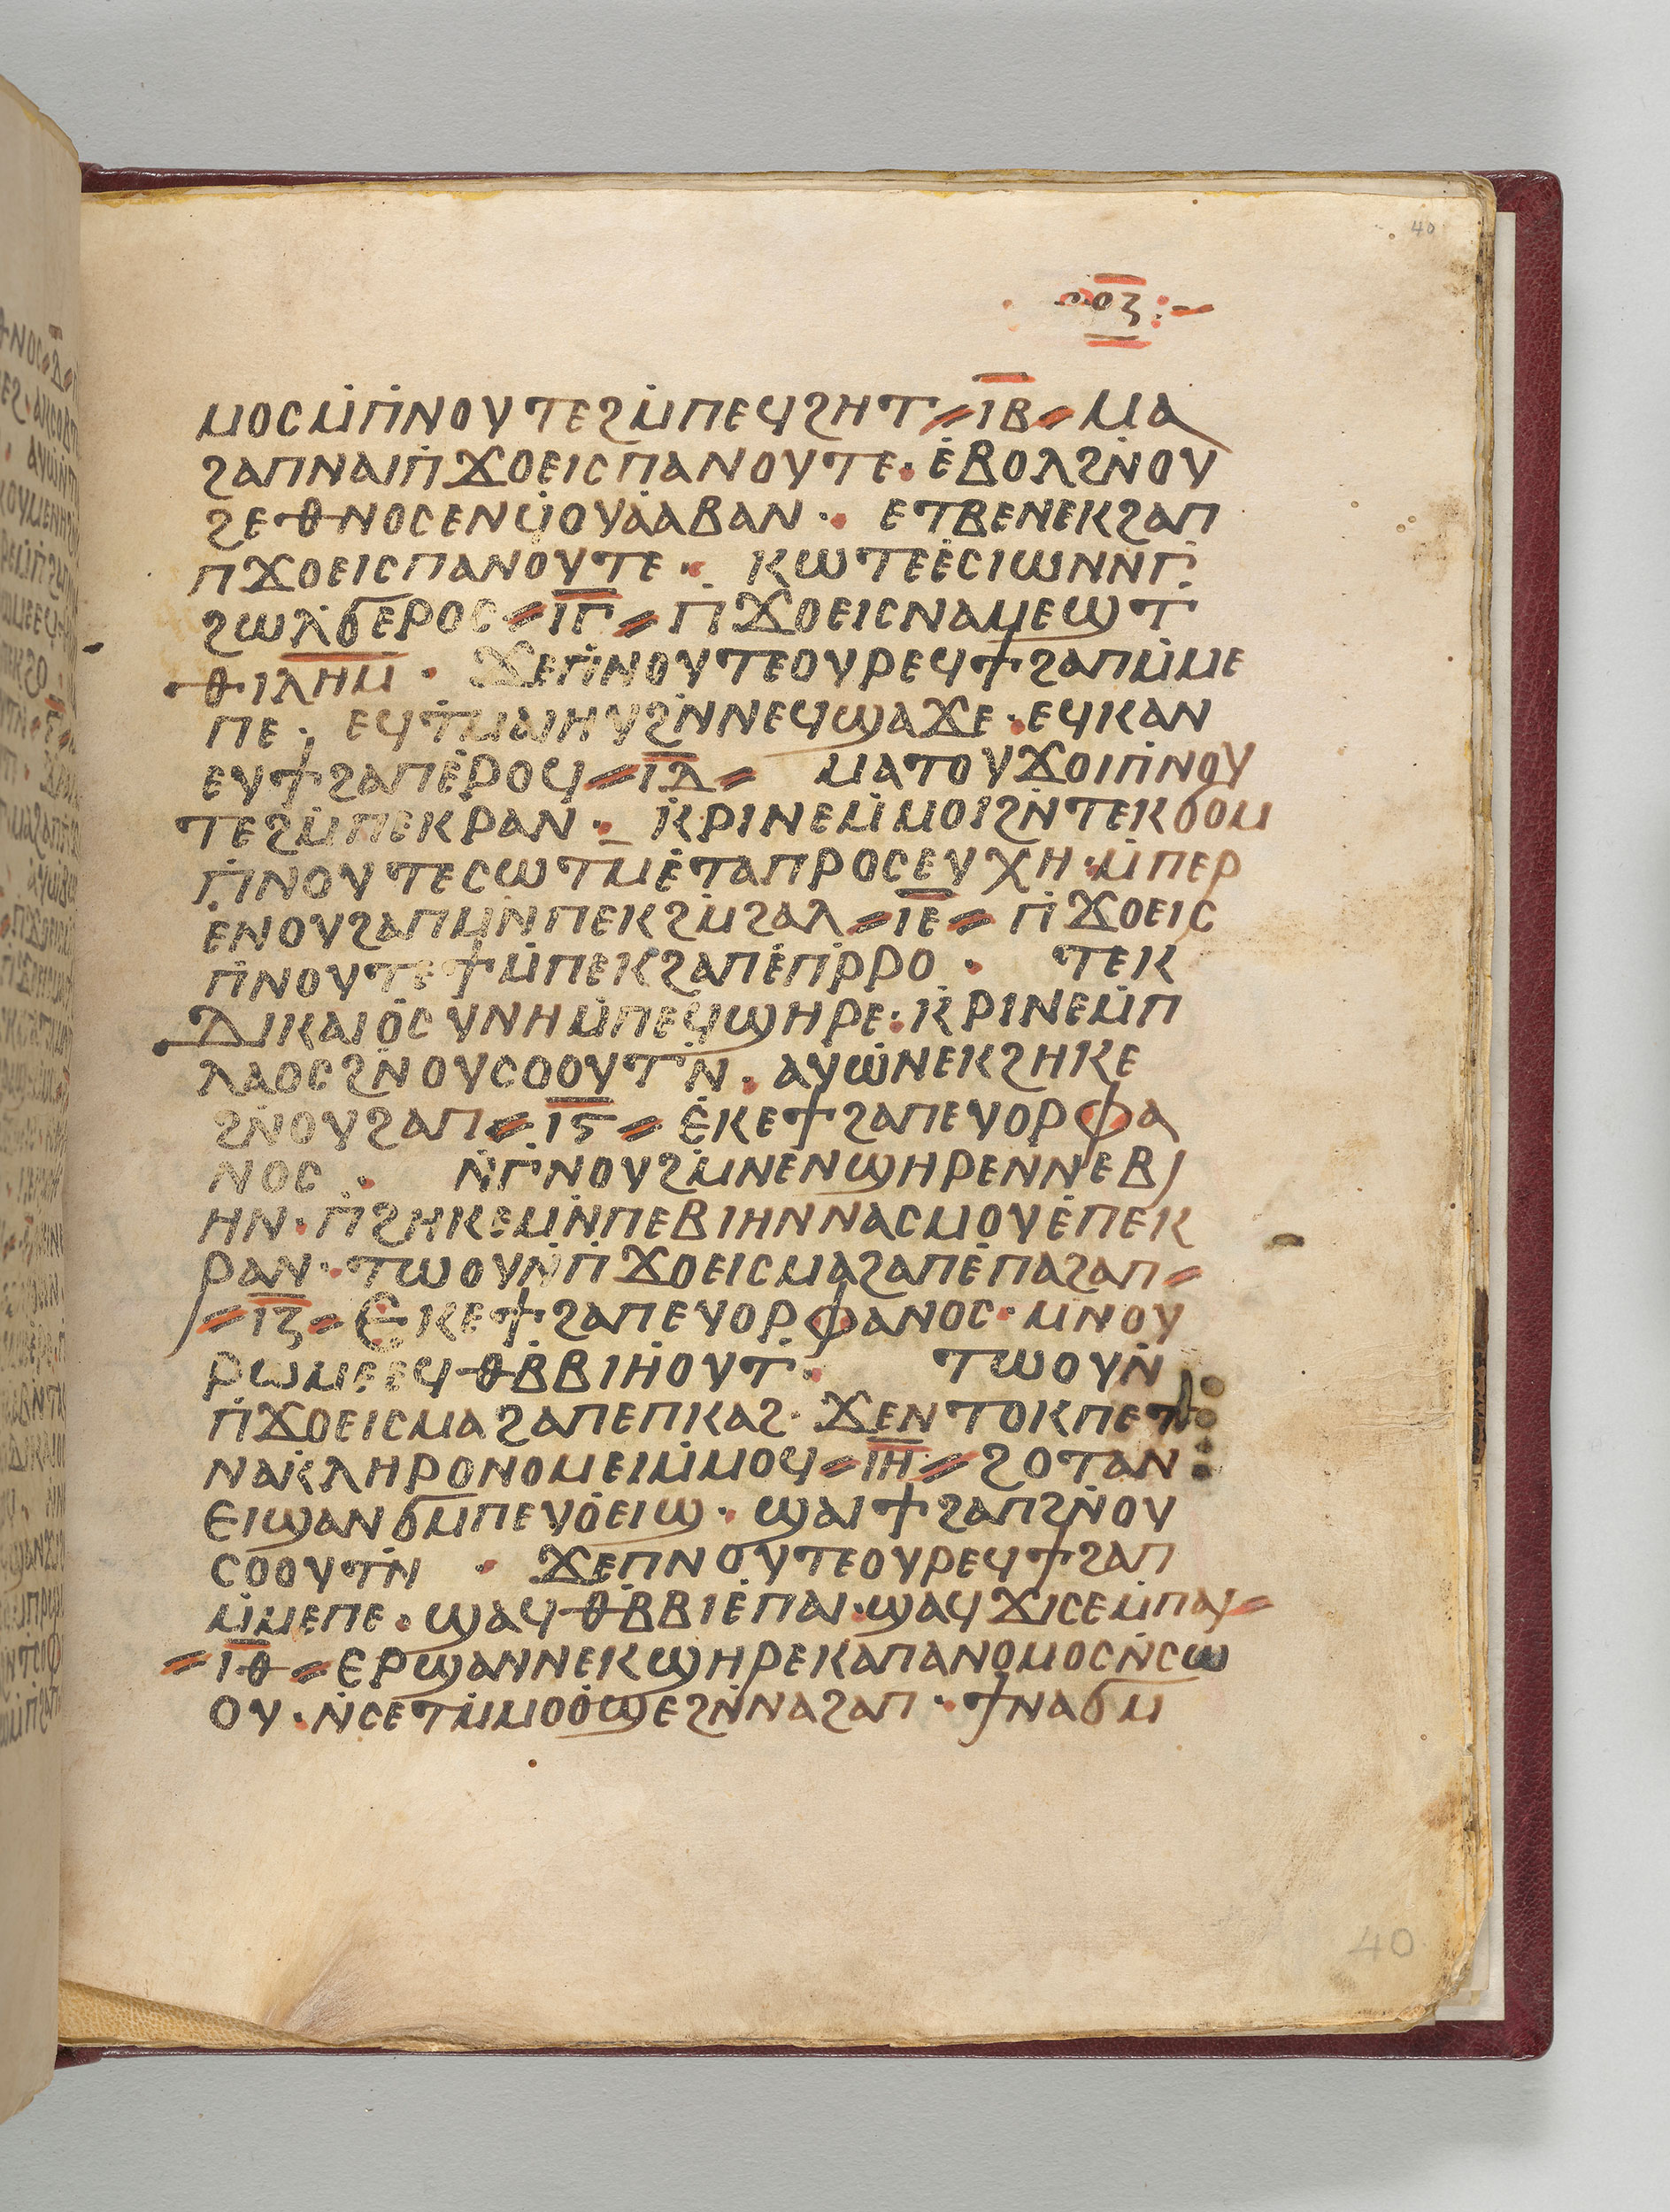 40
ⲟⲍ
ⲙⲟⲥⲙ̇ⲡ̇ⲛⲟⲩⲧⲉϩⲙ̇ⲡⲉϥϩⲏⲧ⸗ⲓ̅ⲃ̅⸗ⲙⲁ
ϩⲁⲡⲛⲁⲓⲡ̇ϫⲟⲉⲓⲥⲡⲁⲛⲟⲩⲧⲉ·ⲉ̇ⲃⲟⲗϩⲛ̇ⲟⲩ
ϩⲉⲑⲛⲟⲥⲉⲛϥ̇ⲟⲩⲁ̇ⲁⲃⲁⲛ· ⲉⲧⲃⲉⲛⲉⲕϩⲁⲡ
ⲡϫⲟⲉⲓⲥⲡⲁⲛⲟⲩⲧⲉ· ⲕⲱⲧⲉⲉ̇ⲥⲓⲱⲛⲛⲅ̇
ϩⲱⲗϭⲉⲣⲟⲥ⸗ⲓ̅ⲅ̅⸗ⲡ̇ϫⲟⲉⲓⲥⲛⲁⲙⲉϣⲧ̇
ⲑⲓⲗⲏⲙ· ϫⲉⲡ̇ⲛⲟⲩⲧⲉⲟⲩⲣⲉϥϯϩⲁⲡⲙ̇ⲙⲉ
ⲡⲉ· ⲉϥⲧ̇ⲙⲁⲓⲏⲩϩⲛ̇ⲛⲉϥϣⲁϫⲉ·ⲉϥⲕⲁⲛ
ⲉⲩϯϩⲁⲡⲉ̇ⲣⲟϥ⸗ⲓ̅ⲇ̅⸗ ⲙⲁⲧⲟⲩϫⲟⲓⲡ̇ⲛⲟⲩ
ⲧⲉϩⲙ̇ⲡⲉⲕⲣⲁⲛ· ⲕ̇ⲣⲓⲛⲉⲙ̇ⲙⲟⲓϩⲛ̇ⲧⲉⲕϭⲟⲙ
ⲡ̇ⲛⲟⲩⲧⲉⲥⲱⲧⲙⲉ̇ⲧⲁⲡⲣⲟⲥⲉⲩⲭⲏ·ⲙ̇ⲡⲉⲣ
ⲉ̇ⲛⲟⲩϩⲁⲡⲙⲛ̇ⲡⲉⲕϩⲙ̇ϩⲁⲗ⸗ⲓ̅ⲉ̅⸗ⲡ̇ϫⲟⲉⲓⲥ
ⲡ̇ⲛⲟⲩⲧⲉϯⲙ̇ⲡⲉⲕϩⲁⲡⲉ̇ⲡ̇ⲣⲣⲟ· ⲧⲉⲕ
ⲇⲓⲕⲁⲓⲟ̇ⲥⲩⲛⲏⲙ̇ⲡⲉϥϣⲏⲣⲉ·ⲕ̇ⲣⲓⲛⲉⲙ̇ⲡ
ⲗⲁⲟⲥϩⲛ̇ⲟⲩⲥⲟⲟⲩⲧⲛ̇·ⲁⲩⲱ̇ⲛⲉⲕϩⲏⲕⲉ
ϩⲛ̇ⲟⲩϩⲁⲡ⸗ⲓ̅ⲋ̅⸗ⲉ̇ⲕⲉϯϩⲁⲡⲉⲩⲟⲣⲫⲁ
ⲛⲟⲥ· ⲛ̇ⲅ̇ⲛⲟⲩϩⲙ̇ⲛⲉⲛϣⲏⲣⲉⲛⲛⲉⲃⲓ
ⲏⲛ·ⲡ̇ϩⲏⲕⲉⲙⲛ̇ⲡⲉⲃⲓⲏⲛⲛⲁⲥⲙⲟⲩⲉ̇ⲡⲉⲕ
ⲣⲁⲛ·ⲧⲱⲟⲩⲛ̇ⲡ̇ϫⲟⲉⲓⲥⲙⲁϩⲁⲡⲉ̇ⲡⲁϩⲁⲡ⸗
⸗ⲓ̅ⲍ̅⸗ⲉⲕⲉϯϩⲁⲡⲉⲩⲟⲣⲫⲁⲛⲟⲥ·ⲙⲛⲟⲩ
ⲣⲱⲙⲉⲉϥⲑⲃ̇ⲃⲓⲏ̇ⲟⲩⲧ· ⲧⲱⲟⲩⲛ̇
ⲡ̇ϫⲟⲉⲓⲥⲙⲁϩⲁⲡⲉⲡⲕⲁϩ·ϫⲉⲛⲧⲟⲕⲡⲉⲧ
ⲛⲁⲕ̇ⲗⲏⲣⲟⲛⲟⲙⲉⲓⲙ̇ⲙⲟϥ⸗ⲓ̅ⲏ̅⸗ϩⲟⲧⲁⲛ
ⲉⲓϣⲁⲛϭⲙⲡⲉⲩⲟ̇ⲉⲓϣ·ϣⲁⲓϯϩⲁⲡϩⲛ̇ⲟⲩ
ⲥⲟⲟⲩⲧⲛ̇ · ϫⲉⲡⲛⲟⲩⲧⲉⲟⲩⲣⲉϥϯϩⲁⲡ
ⲙ̇ⲙⲉⲡⲉ·ϣⲁϥⲑⲃ̇ⲃⲓⲉ̇ⲡⲁⲓ·ϣⲁϥϫⲓⲥⲉⲙ̇ⲡⲁⲓ⸗
⸗ⲓ̅ⲑ̅⸗ⲉⲣϣⲁⲛⲛⲉⲕϣⲏⲣⲉⲕⲁⲡⲁⲛⲟⲙⲟⲥⲛ̇ⲥⲱ
ⲟⲩ·ⲛ̇ⲥⲉⲧⲙ̇ⲙⲟⲟ̇ϣⲉϩⲛ̇ⲛⲁϩⲁⲡ·ϯⲛⲁϭⲙ
40